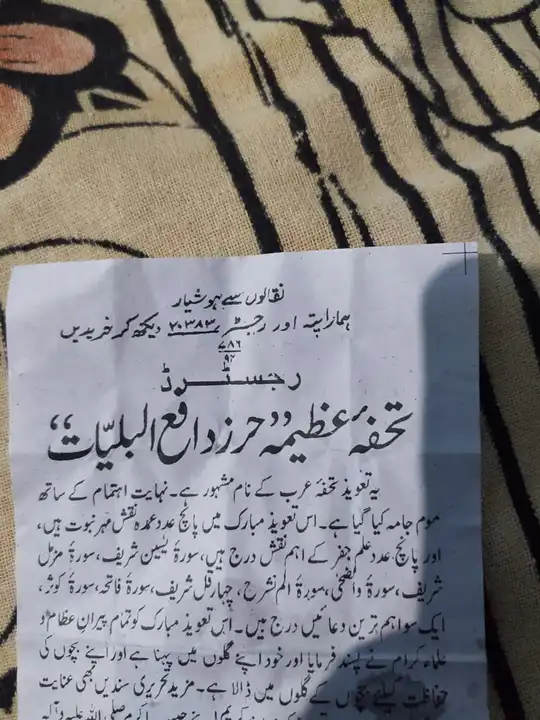 نقالوں سے ہوشیار
ہمارا پتہ اور رجسٹر ۲۰۳۸۳ دیکھ کر خریدیں
۷۸۶
۹۲
رجسٹرڈ
تحفۂ عظیمہ ”حرز دافع البلیّات“
یہ تعویذ تحفہ عرب کے نام مشہور ہے۔ نہایت اہتمام کے ساتھ
موم جامہ کیا گیا ہے۔ اس تعویذ مبارک میں پانچ عدد عمدہ نقش مہر نبوت ہیں،
اور پانچ عدد علم جفر کے اہم نقش درج ہیں، سورۂ یٰسین شریف، سورۂ مزمل
شریف، سورۂ واضحیٰ، سورۂ الم نشرح، چہار قل شریف، سورۂ فاتحہ، سورۂ کوثر،
ایک سو اہم ترین دعائیں درج ہیں۔ اس تعویذ مبارک کو تمام پیران عظام و
علماء کرام نے پسند فرمایا اور خود اپنے گلوں میں پہنا ہے اور اپنے بچوں کی
حفاظت کیلئے بچوں کے گلوں میں ڈالا ہے۔ مزید تحریری سندیں بھی عنایت
صلی اللہ علیہ وآلہ